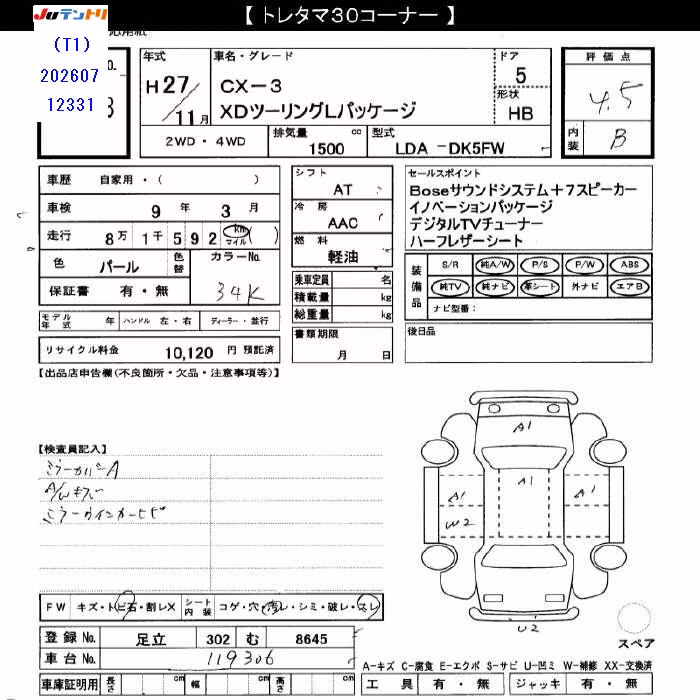 【 トレタマ30コーナー 】
JUテントリ
(T1)
202607
12331
年式
H 27/11月
車名・グレード
CX-3
XDツーリングLパッケージ
ドア
5
形状
HB
評価点
4.5
内装
B
2WD・4WD
排気量 cc
1500
型式
LDA -DK5FW
車歴 自家用・( )
車検 9 年 3 月
走行 8万 1千 5 9 2 km マイル ( )
色 パール 色替 カラーNo.
34K
保証書 有・無
シフト
AT
冷房
AAC
燃料
軽油
乗車定員 名
積載量 kg
総重量 kg
書類期限
月 日
セールスポイント
Boseサウンドシステム+7スピーカー
イノベーションパッケージ
デジタルTVチューナー
ハーフレザーシート
装備品
S/R 純A/W P/S P/W ABS
純TV 純ナビ 革シート 外ナビ エアB
ナビ型番:
後日品
モデル年式 年 ハンドル 左・右 ディーラー・並行
リサイクル料金 10,120 円 預託済
【出品店申告欄(不良箇所・欠品・注意事項等)】
【検査員記入】
ミラーカバーA
A/Wキズ
ミラーウインカーヒビ
A1
A1
A1
A1
W2
U2
スペア
FW キズ・トビ石・割レX シート内装 コゲ・穴・汚レ・シミ・破レ・スレ
登録No. 足立 302 む 8645
車台No. 119306
車庫証明用 長さ cm 幅 cm 高さ cm
A-キズ C-腐食 E-エクボ S-サビ U-凹ミ W-補修 XX-交換済
工具 有・無 ジャッキ 有・無